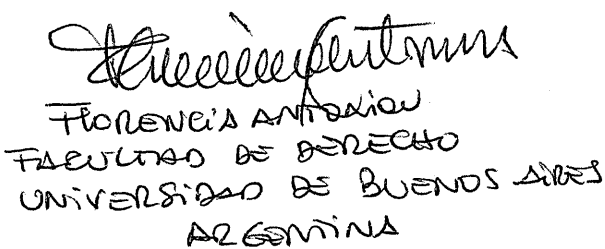 FLORENCIA ANTONIOU
FACULTAD DE DERECHO
UNIVERSIDAD DE BUENOS AIRES
ARGENTINA